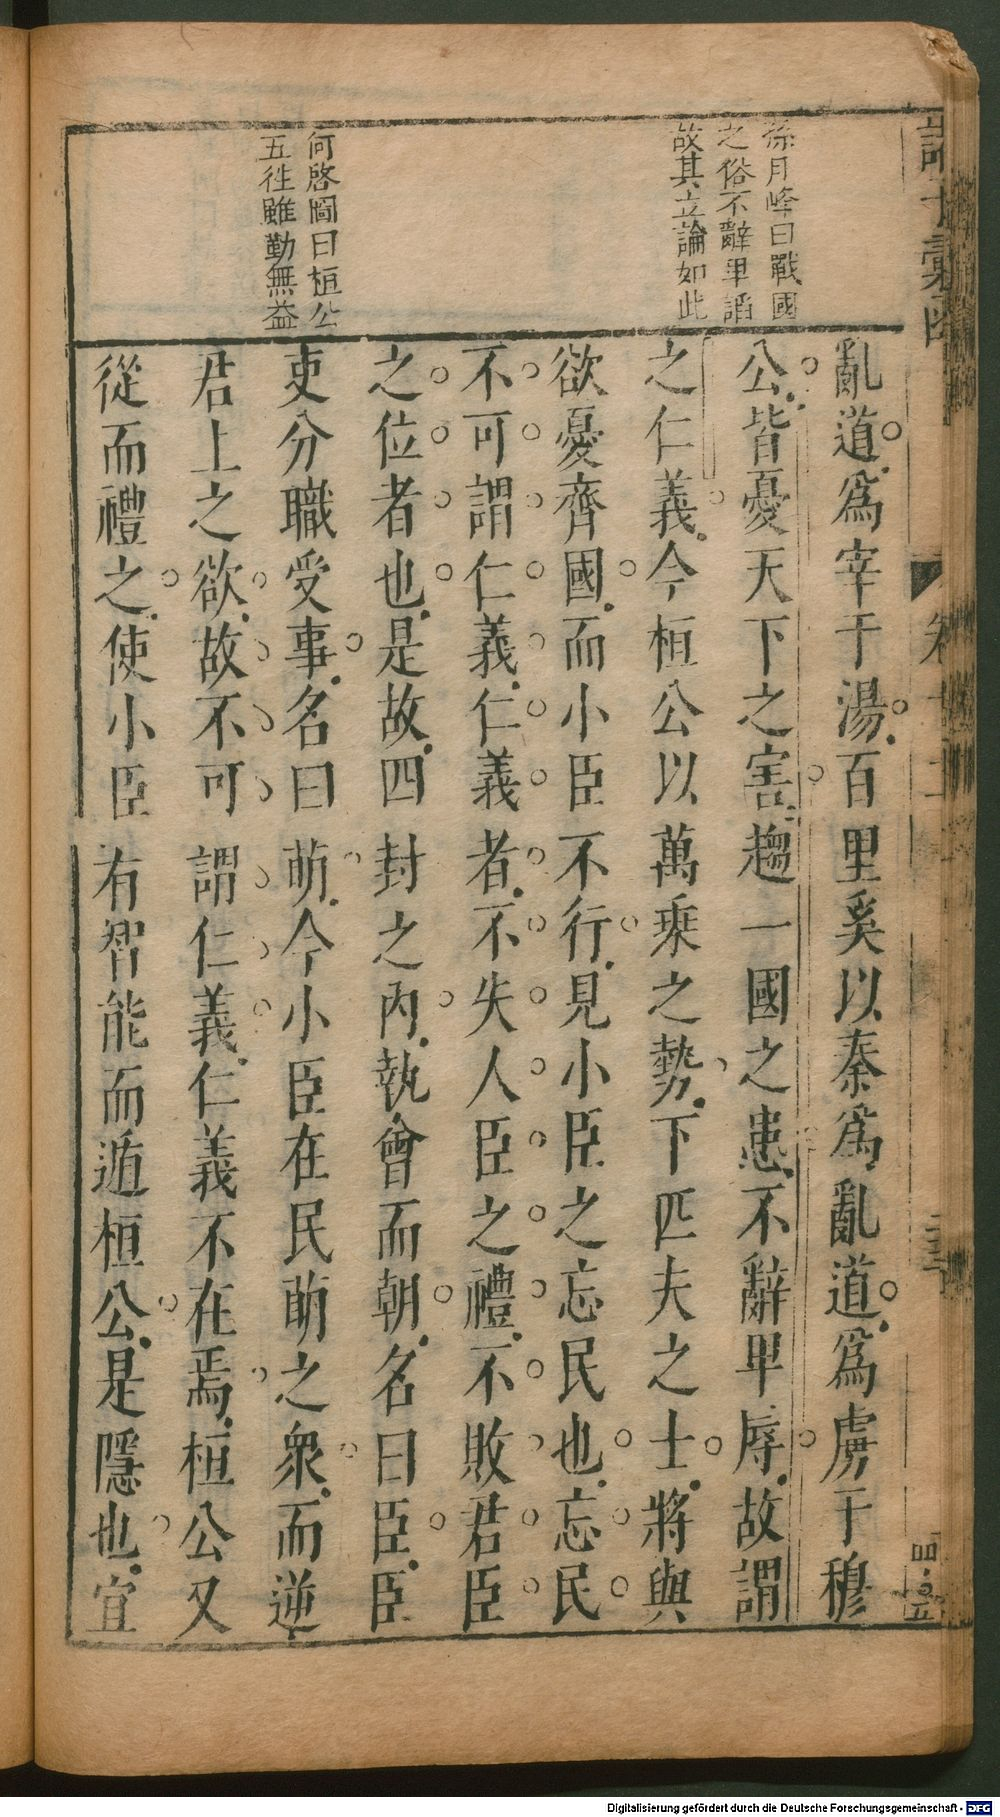 孫月峰曰戰國
之俗不辭卑謟
故其立論如此
何啓圖曰桓公
五徃雖勤無益
亂道爲宰于湯百里奚以秦爲亂道爲虜于穆
公皆憂天下之害趨一國之患不辭卑辱故謂
之仁義今桓公以萬乗之勢下匹夫之士將與
欲憂齊國而小臣不行見小臣之忘民也忘民
不可謂仁義仁義者不失人臣之禮不敗君臣
之位者也是故四封之內執會而朝名曰臣臣
吏分職受事名曰萌今小臣在民萌之衆而逆
君上之欲故不可謂仁義仁義不在焉桓公又
從而禮之使小臣有智能而遁桓公是隱也宜
諸子彙函
卷
Digitalisierung gefördert durch die Deutsche Forschungsgemeinschaft - DFG